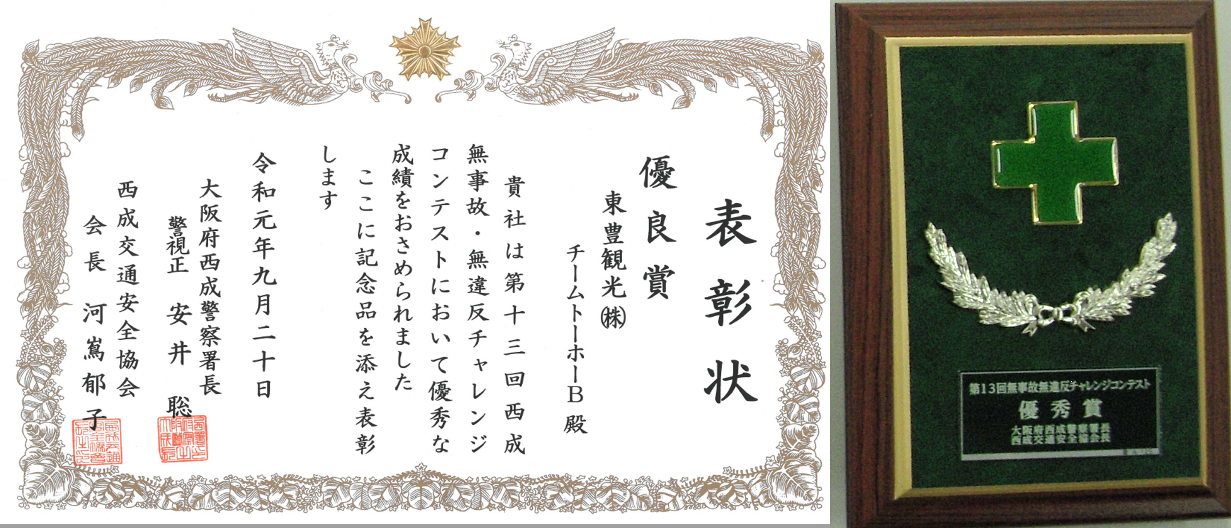 表彰状
優良賞
東豊観光㈱
チームトーホーB殿
貴社は第十三回西成
無事故・無違反チャレンジ
コンテストにおいて優秀な
成績をおさめられました
ここに記念品を添え表彰
します
令和元年九月二十日
大阪府西成警察署長
警視正 安井 聡
西成交通安全協会
会長 河嶌郁子
第13回無事故無違反チャレンジコンテスト
優秀賞
大阪府西成警察署長
西成交通安全協会長